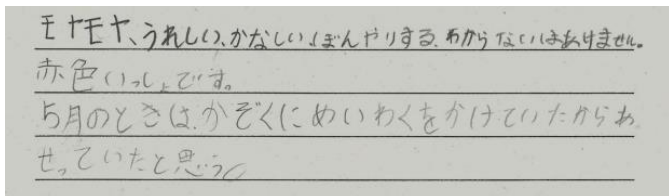 モヤモヤ、うれしい、かなしい、ぼんやりする、わからないはあけません。
赤色いっしょです。
5月のときは、かぞくにめいわくをかけていたからあ
せっていたと思う